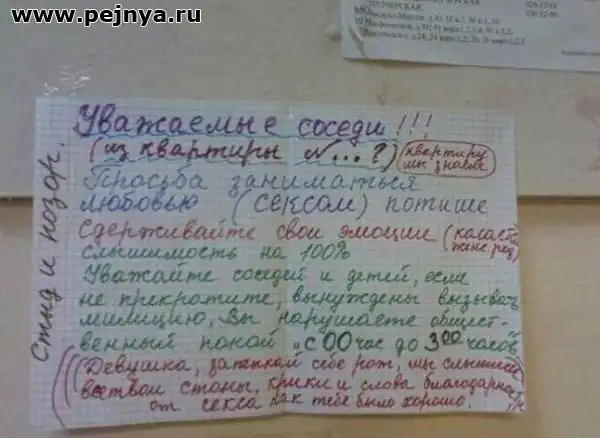 www.pejnya.ru
Уважаемые соседи!!!
(из квартиры №...?) (квартиру мы знаем)
Просьба заниматься
любовью (сексом) потише
Сдерживайте свои эмоции (касается женс. род)
слышимость на 100%
Уважайте соседей и детей, если
не прекротите, вынуждены вызывать
милицию, Вы нарушаете общест-
венный покой „с 00 час до 3 00 часов"
(Девушка, затыкай себе рот, мы слышим
все твои стоны, крики и слова благодарности
от секса как тебе было хорошо.
Стыд и позор.